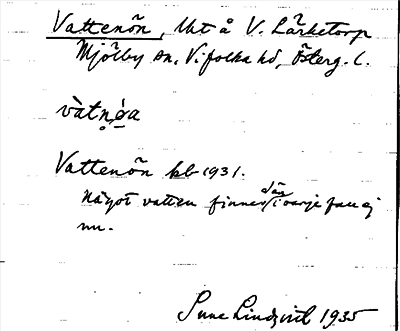 Vattenön, Lht å V. Lärketorp
Mjölby sn, Vifolka hd, Österg. l.
vàtnǿa
Vattenön kb 1931.
Något vatten finnes där i varje fall ej
nu.
Sune Lindqvist 1935